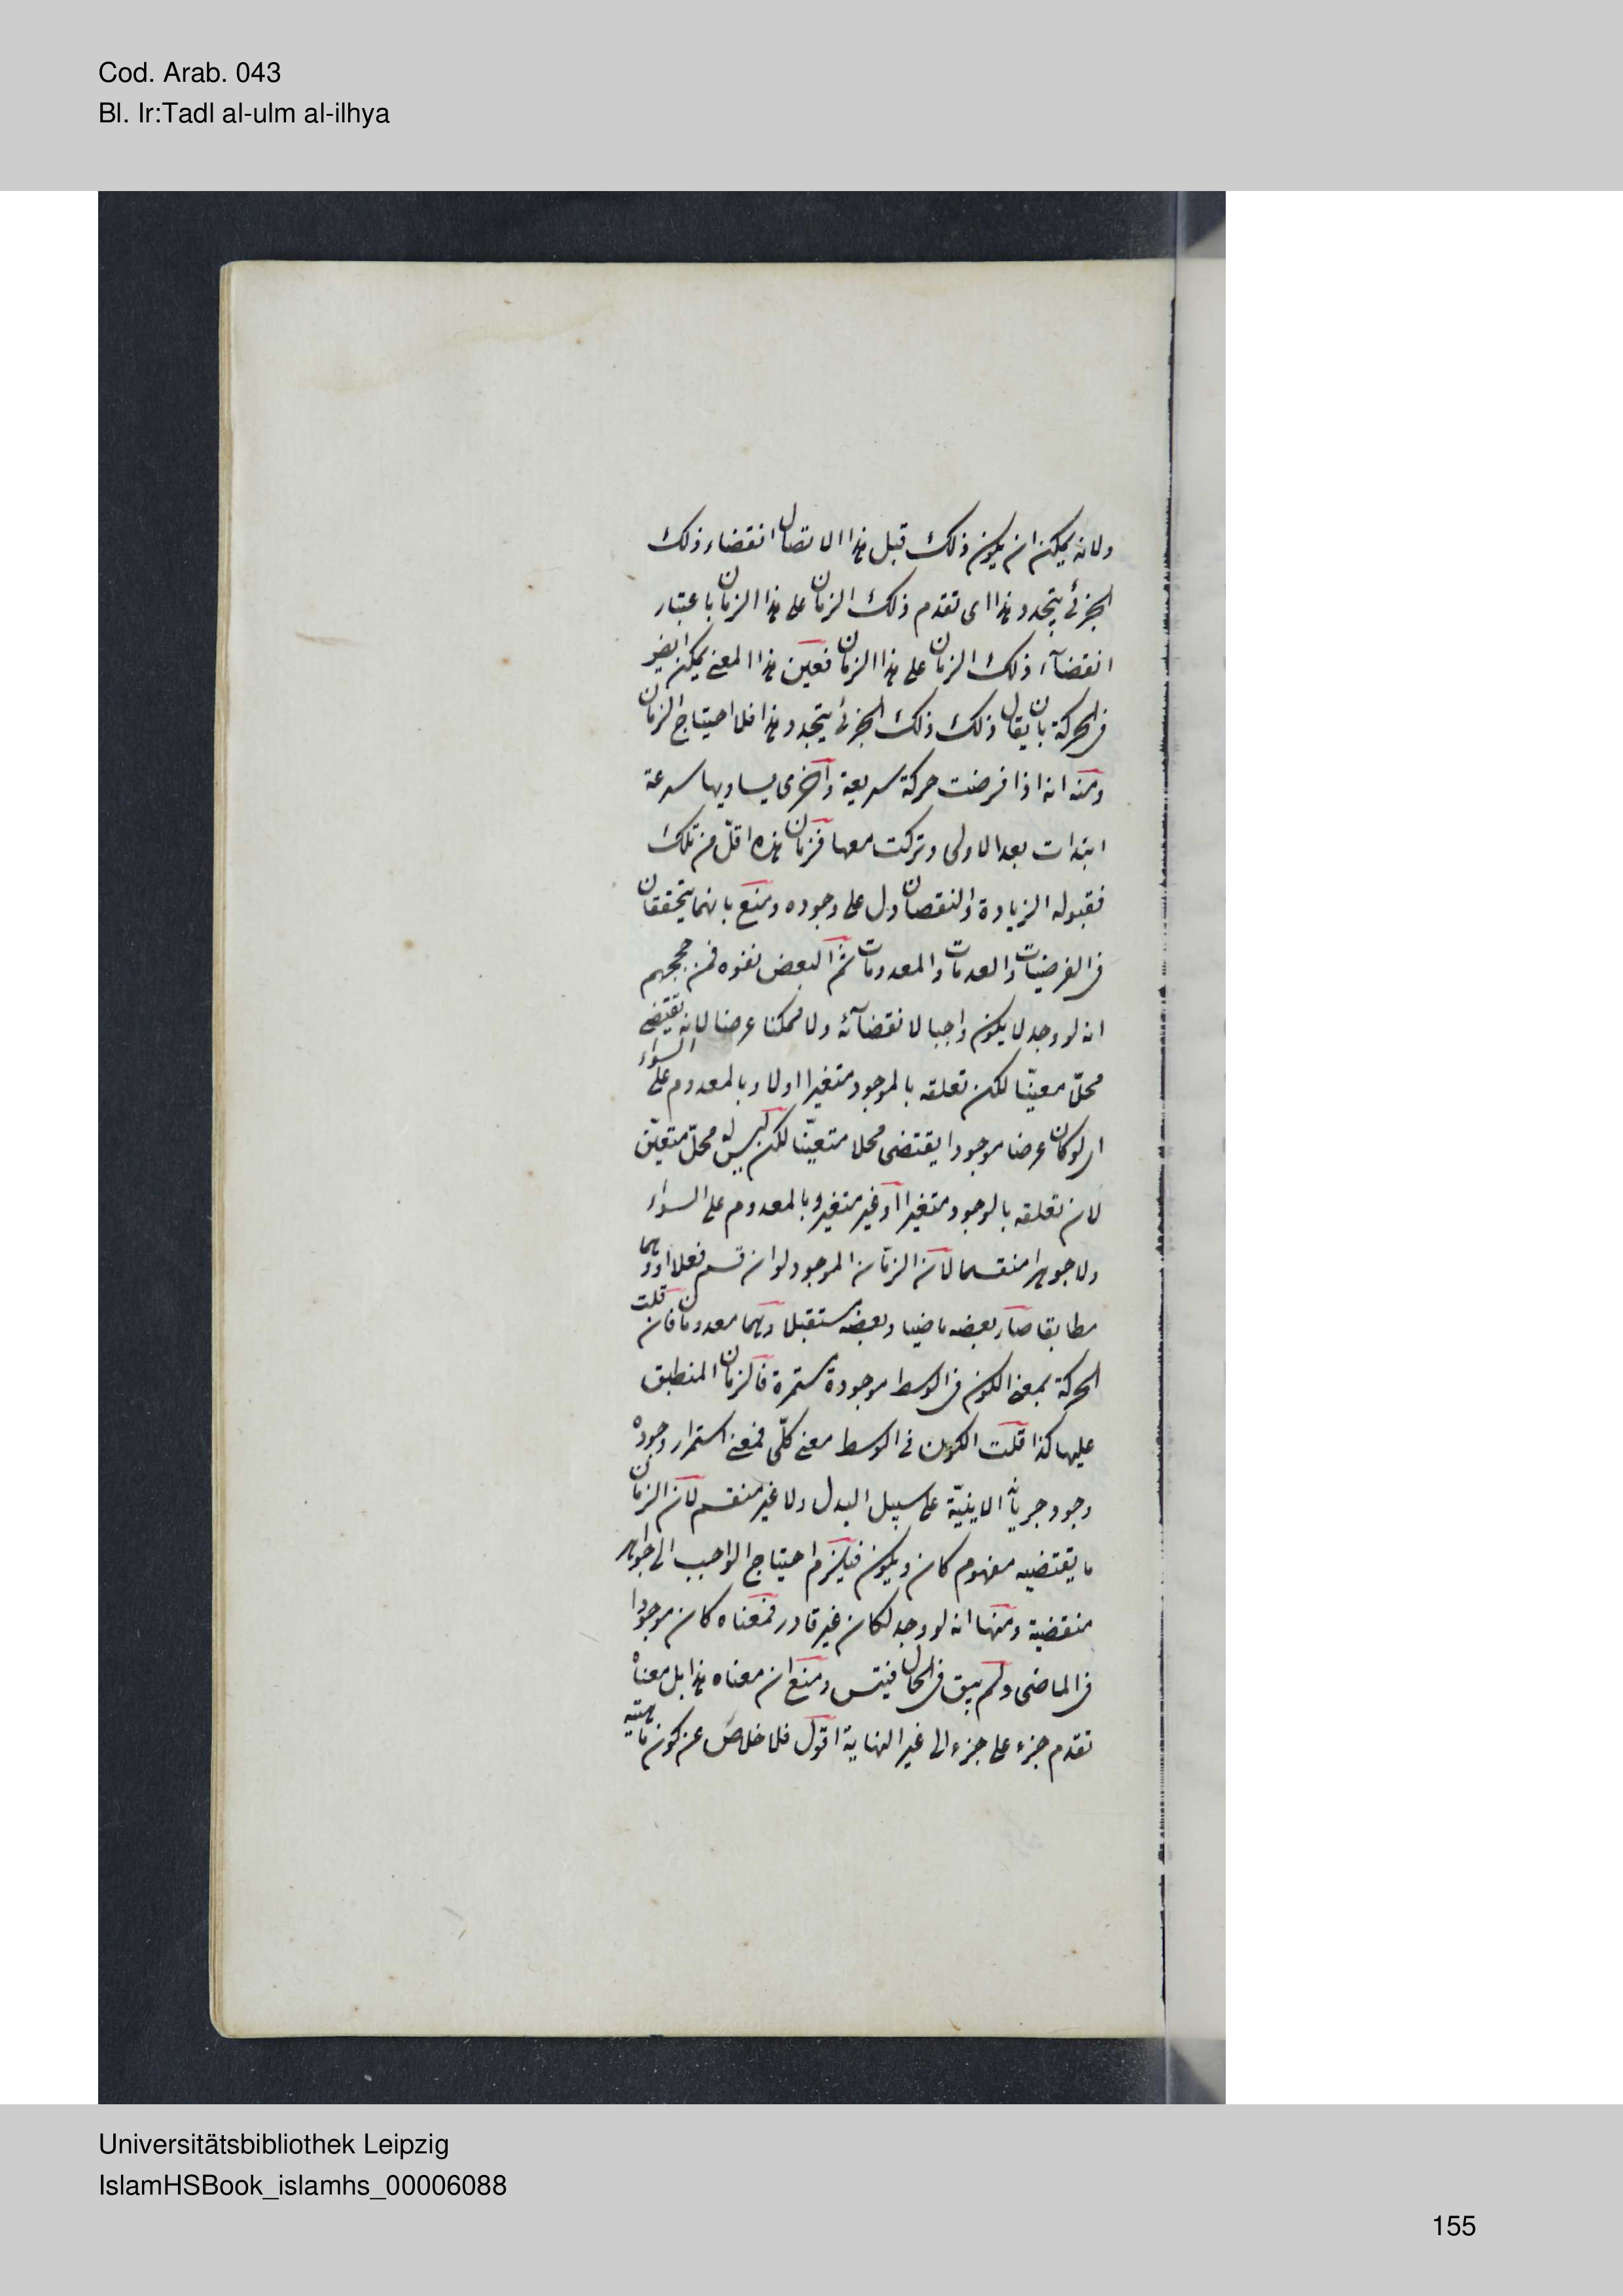 Cod. Arab. 043
Bl. Ir:Tadl al-ulm al-ilhya
ولانه يمكن ان يكون ذلك قبل هذا الاتصال انقضاء ذلك
الجزئ يتجدد هذا اى تقدم ذلك الزمان على هذا الزمان باعتبار
انقضآء ذلك الزمان على هذا الزمان فعين هذا المعنى يمكن ايضا
فى الحركة بان يقال ذلك ذلك الجزئ يتجدد هذا فلا احتياج الزمان
ومنه انه اذا فرضت حركة سريعة واخرى يساويها سرعة
ابتدات بعد الاولى وتركت معها فزمان هذه اقلّ من تلك
فقبوله الزيادة والنقصان دل على وجوده ومنع بانهما يتحققان
فى الفرضيات والعدمات والمعدومات ثم البعض نفوه فمن حججهم
انه لو وجد لا يكون واجبا لانقضآئه ولا ممكنا عرضا لانه يقتضى
محلّ معيّنا لكن تعلقه بالموجود متغيرا اولا وبالمعدوم على السواء
اى لو كان عرضا موجودا يقتضى محلا متعيّنا لكن ليس له محلّ متعيّن
لان تعلقه بالوجود متغيرا او غير متغير وبالمعدوم على السواء
ولا جوهرا منقسما لان الزمان الموجود لو انقسم فعلا او وهما
مطابقا صار بعضه ماضيا وبعضه مستقبلا وهما معدومان فان قلت
الحركة بمعنى الكون فى الوسط موجودة مستمرة فالزمان المنطبق
عليها كذا قلت الكون فى الوسط معنى كلّى فمعنى استمرار وجوده
وجود جزياته الاينيّة على سبيل البدل ولا غير منقسم لان الزمان
ما يقتضيه مفهوم كان ويكون فيلزم احتياج الواجب الى جواهر
منقضية ومنها انه لو وجد لكان غير قادر فمعناه كان موجودا
فى الماضى ولم يبق فى الحال ومنع ان معناه هذا بل معناه
تقدم جزء على جزء الى غير النهاية اقول فلا خلاص عن كون ماهيته
Universitätsbibliothek Leipzig
IslamHSBook_islamhs_00006088
155